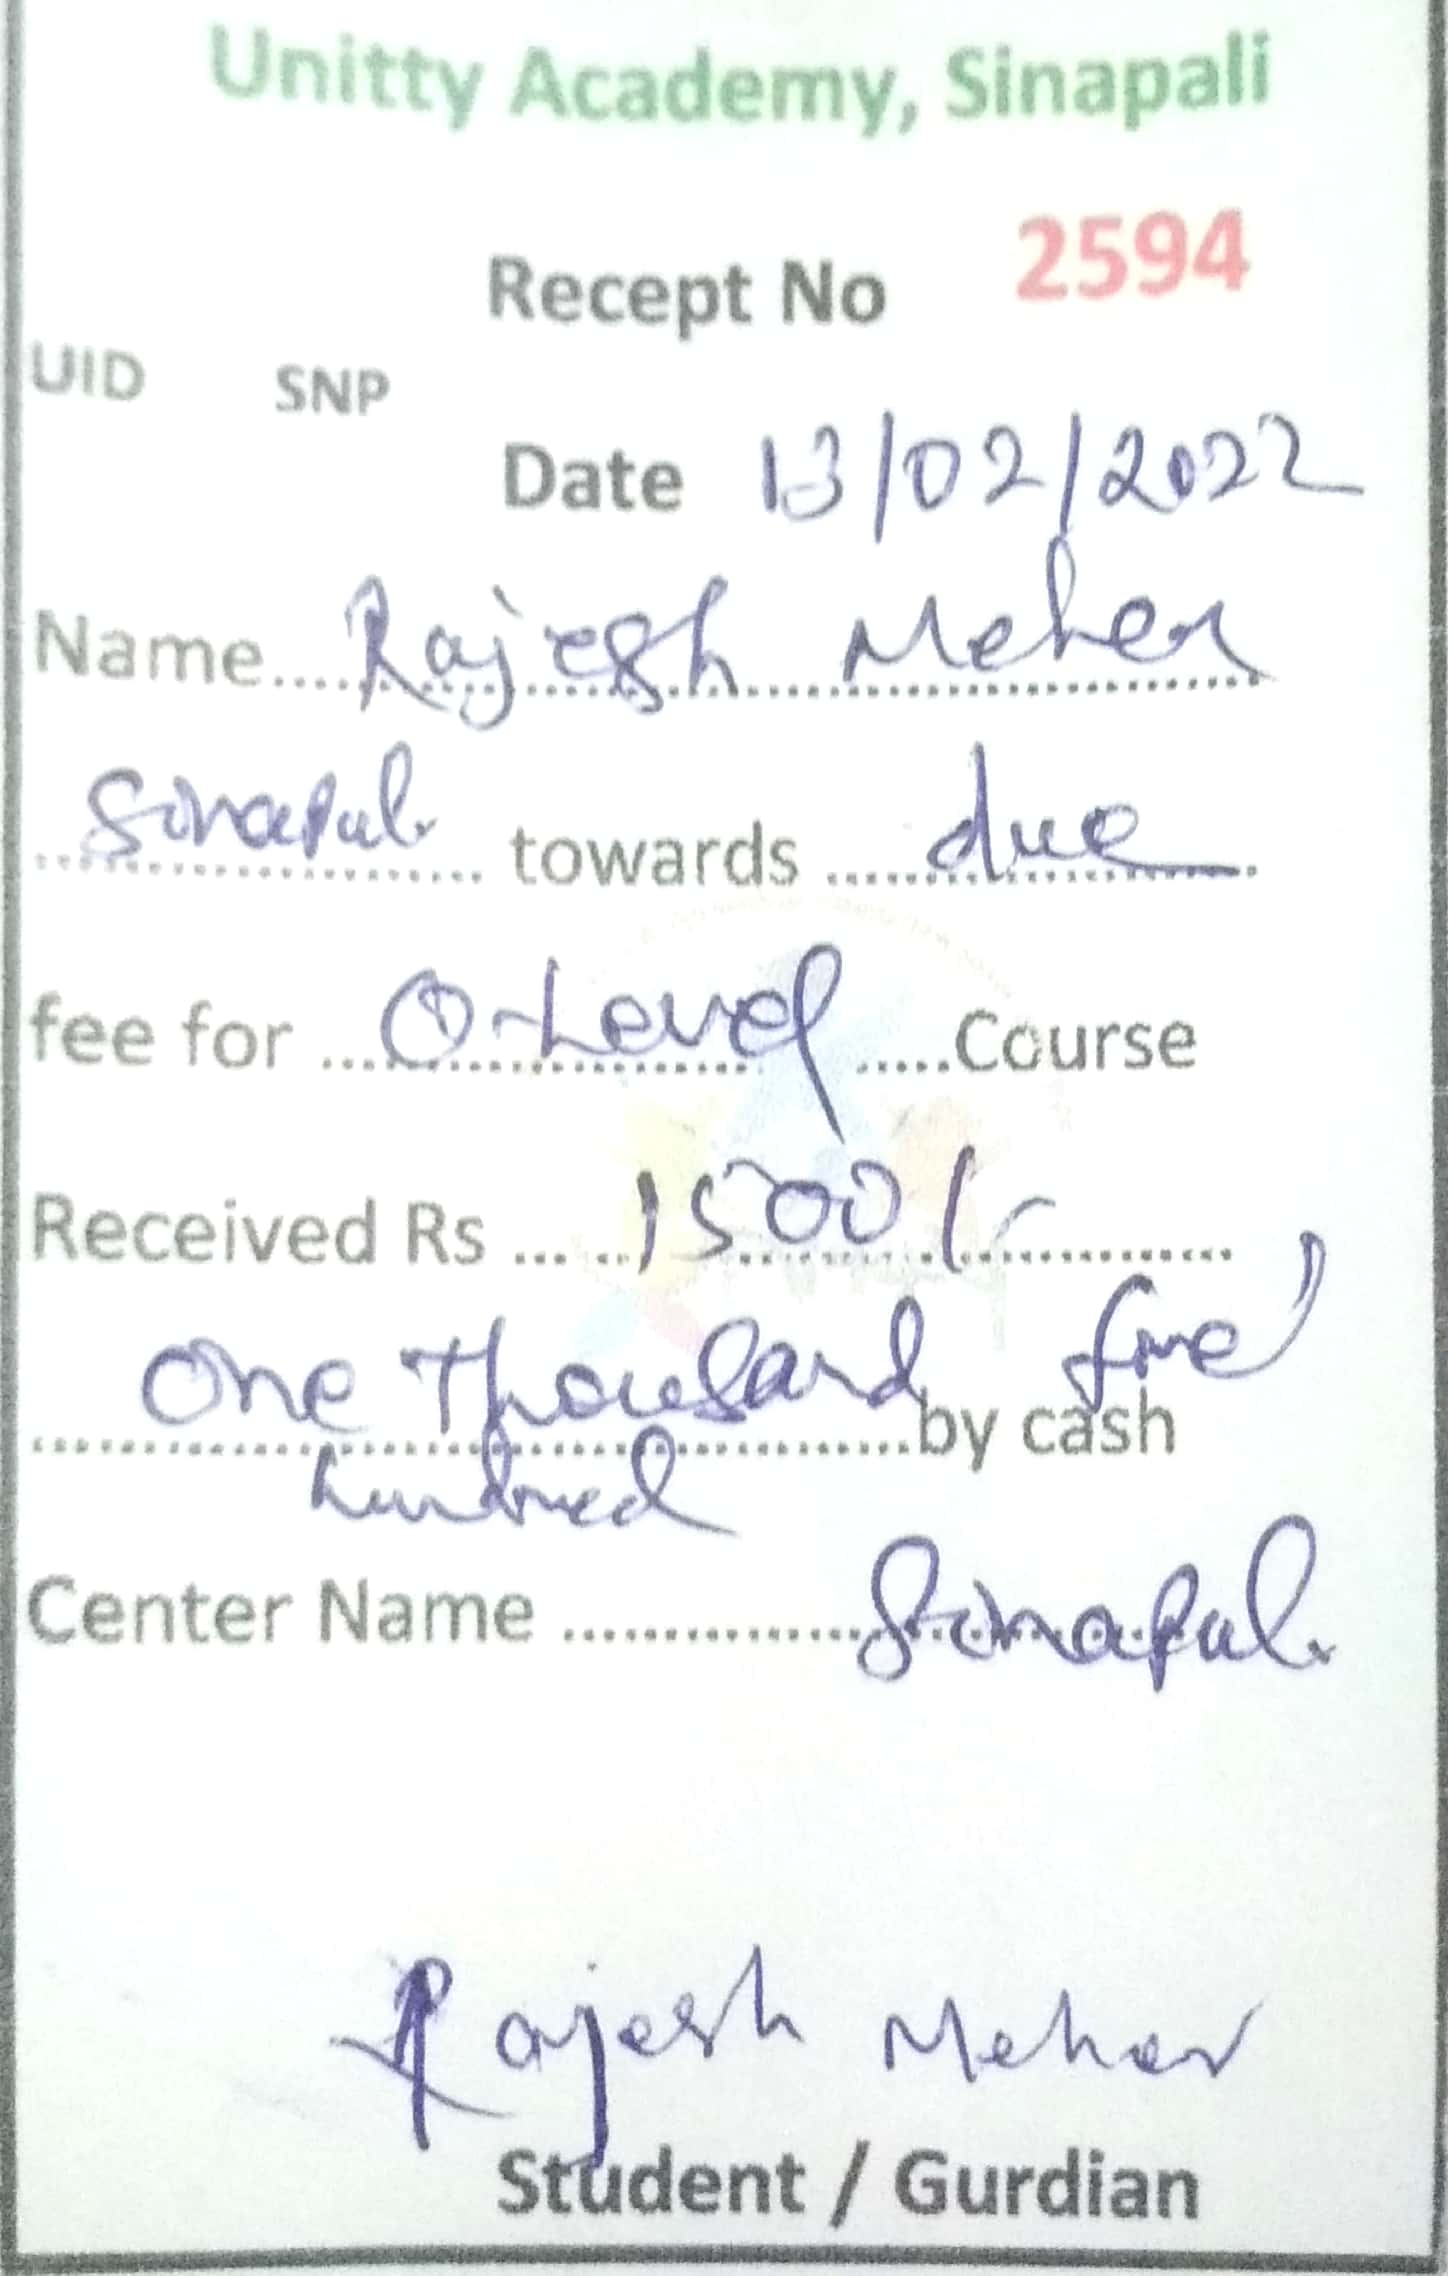 Unitty Academy, Sinapali
Recept No 2594
UID SNP
Date 13/02/2022
Name.... Rajesh Meher
Sinapali towards due
fee for ... O-Level .....Course
Received Rs ... 1500/-
One Thousand five
by cash
hundred
Center Name ............... Sinapali
Rajesh Meher
Student / Gurdian